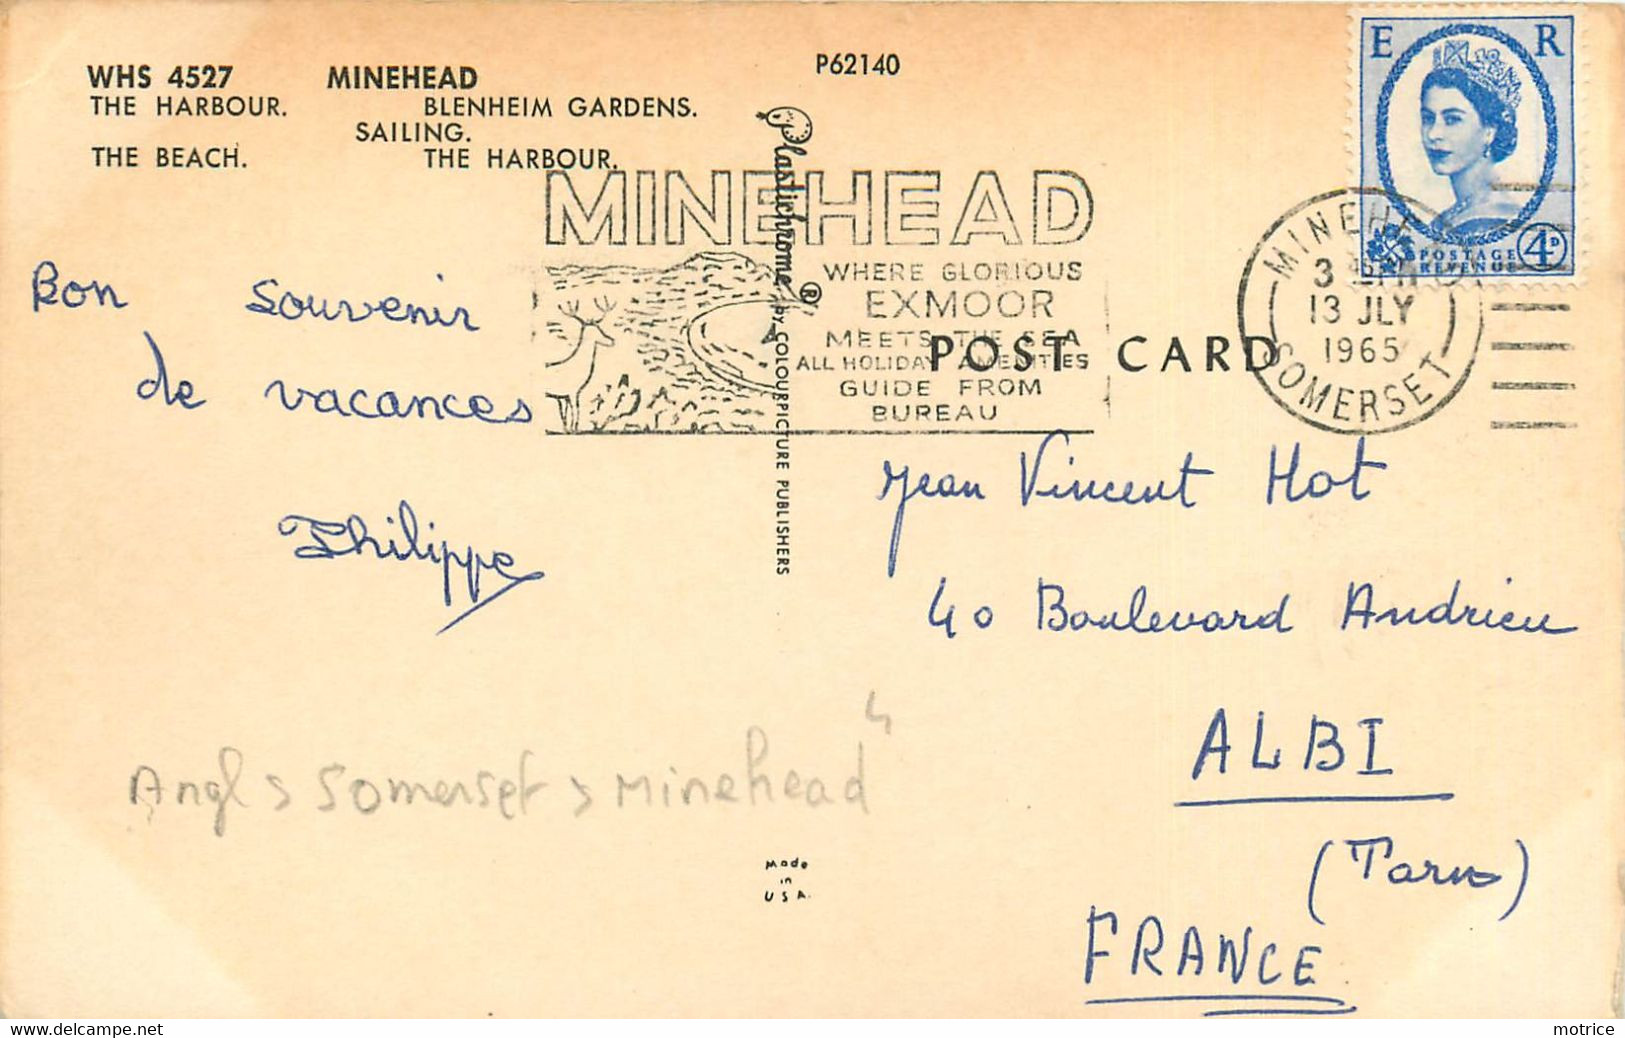 WHS 4527 MINEHEAD
THE HARBOUR. BLENHEIM GARDENS.
SAILING.
THE BEACH. THE HARBOUR.
P62140
Plastichrome® BY COLOURPICTURE PUBLISHERS
MINEHEAD
WHERE GLORIOUS
EXMOOR
MEETS THE SEA
ALL HOLIDAY AMENITIES
GUIDE FROM
BUREAU
E R
POSTAGE 4D
REVENUE
13 JLY
1965
SOMERSET
POST CARD
Bon souvenir
de vacances
Philippe
Jean Vincent Hot
40 Boulevard Andrieu
ALBI
(Tarn)
FRANCE
4
Angl > Somerset > Minehead
Made
in
USA.
delcampe.net
motrice